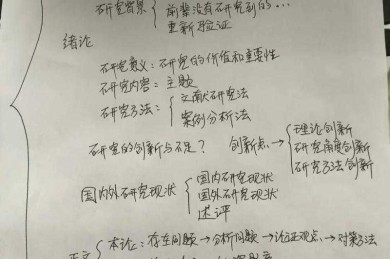 研究背景 { 前辈没有研究到的...
重新验证
绪论
研究意义：研究的价值和重要性
研究内容：主题
研究方法： { 文献研究法
案例分析法
研究的创新与不足？ 创新点→ { 理论创新
研究角度创新
研究方法创新
国内外研究现状 { 国内研究现状
国外研究现状
述评
正文 { 本论：存在问题→分析问题→论证观点→对策方法